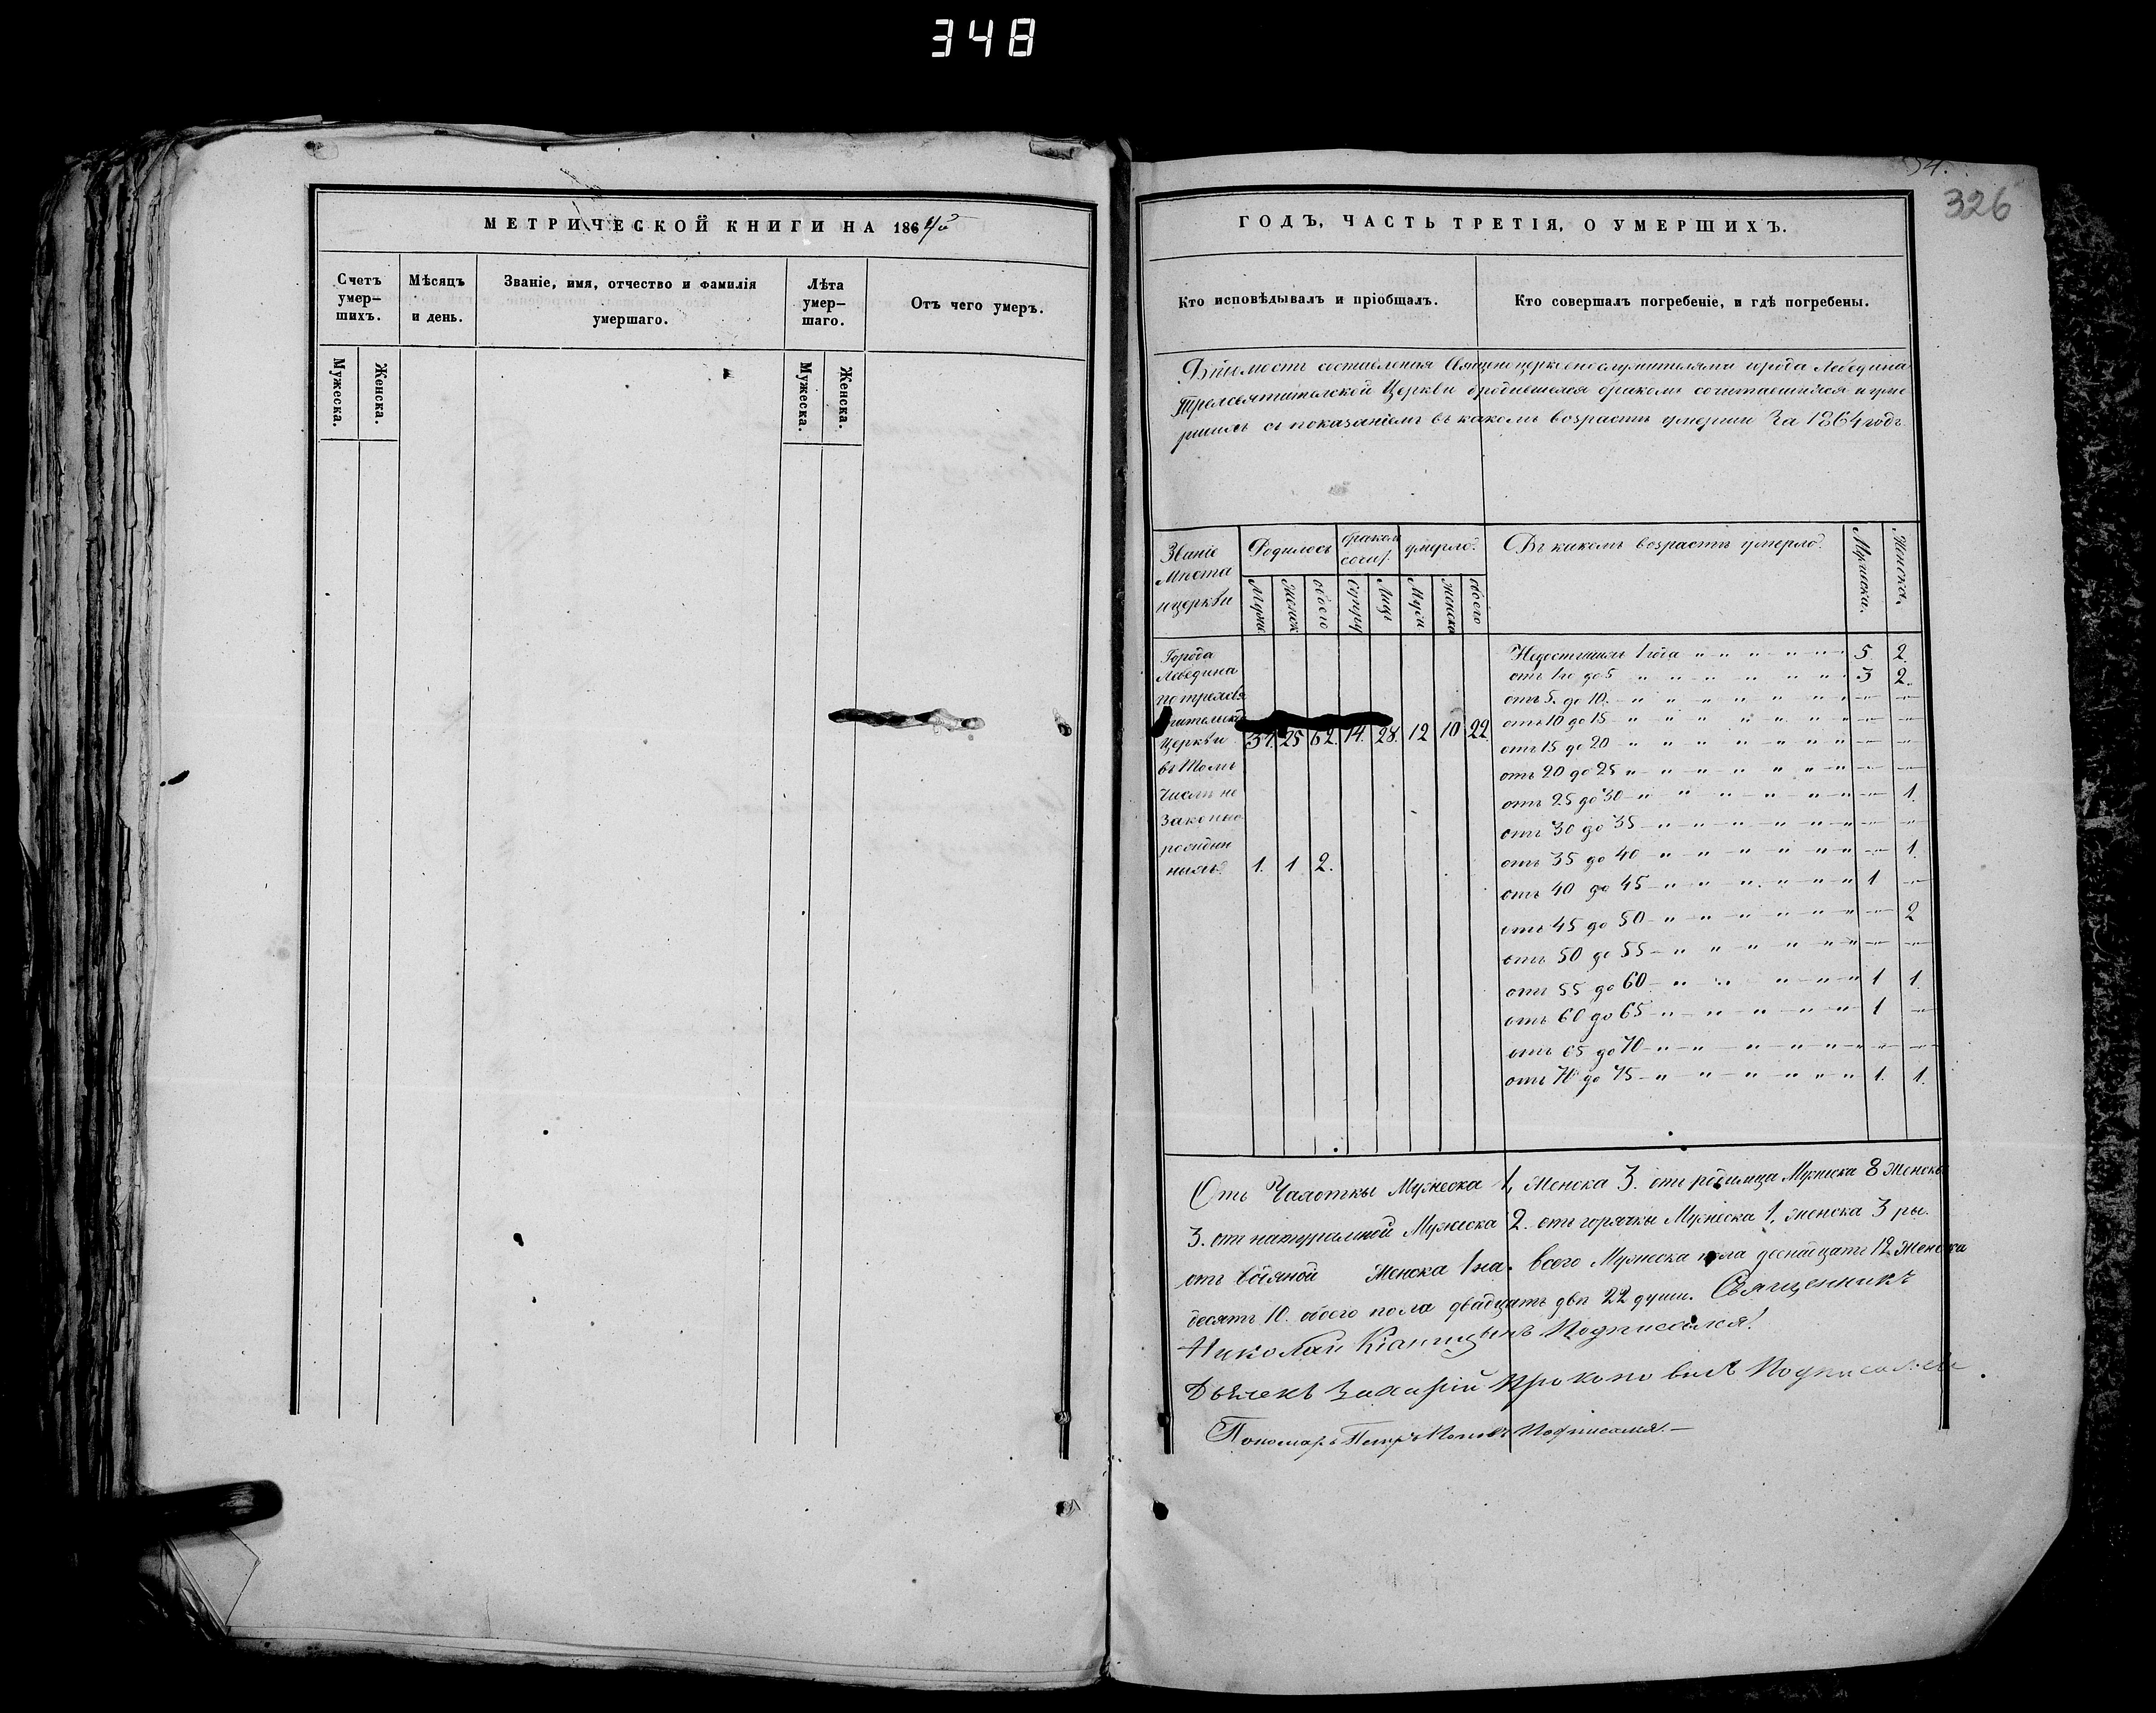 348
МЕТРИЧЕСКОЙ КНИГИ НА 1864й
Счетъ умер-
шихъ.
Мѣсяцъ
и день.
Званіе, имя, отчество и фамилія
умершаго.
Лѣта
умер-
шаго.
Отъ чего умеръ.
Мужеска.
Женска.
Мужеска.
Женска.
54.
326
ГОДЪ, ЧАСТЬ ТРЕТІЯ, О УМЕРШИХЪ.
Кто исповѣдывалъ и пріобщалъ.
Кто совершалъ погребеніе, и гдѣ погребены.
составленая города Лебедина
Церкви бракомъ
съ показаніемъ въ какомъ возрастѣ умерли За 1864 годъ
Званіе
Мѣста
и церкви
Родилось
бракомъ
сочит.
умерло.
Въ какомъ возрастѣ умерло.
Мужеска.
Женска.
Мужес
Женск
обоего
Супру
Лицъ
Муж
Женска
обоего
Города
Лебедина
Церкви 25 62. 14. 28. 12 10 22
въ томъ
числѣ не
законно
рожден
ныхъ 1. 1 2.
Недостигшихъ 1 года " " " " " " 5 2.
отъ 1го до 5 " " " " " " 3 2
отъ 5. до 10. " " " " " " — —
отъ 10 до 15 " " " " " " — —
отъ 15 до 20 " " " " " " — —
отъ 20 до 25 " " " " " " — —
отъ 25 до 30 " " " " " " — 1.
отъ 30 до 35 " " " " " " — —
отъ 35 до 40 " " " " " " — 1.
отъ 40 до 45 " " " " " " 1 —
отъ 45 до 50 " " " " " " — 2
отъ 50 до 55 " " " " " " — —
отъ 55 до 60 " " " " " 1 1.
отъ 60 до 65 " " " " " " 1 —
отъ 65 до 70 " " " " " " — —
отъ 70 до 75 " " " " " " 1. 1.
Отъ Чахотки Мужеска 1, Женска 3. отъ родимца Мужеска 8 Женска
3. отъ натуральной Мужеска 2. отъ горячки Мужеска 1, женска 3 ри.
отъ Женска 1на. всего Мужеска пола двенадцать 12 Женска
десять 10. обоего пола двадцать двѣ 22 души. Священникъ
Николай Подписался.
Дьячекъ Захарій Прокоповичъ Подписался.
Пономарь Петръ Поповъ Подписался.—